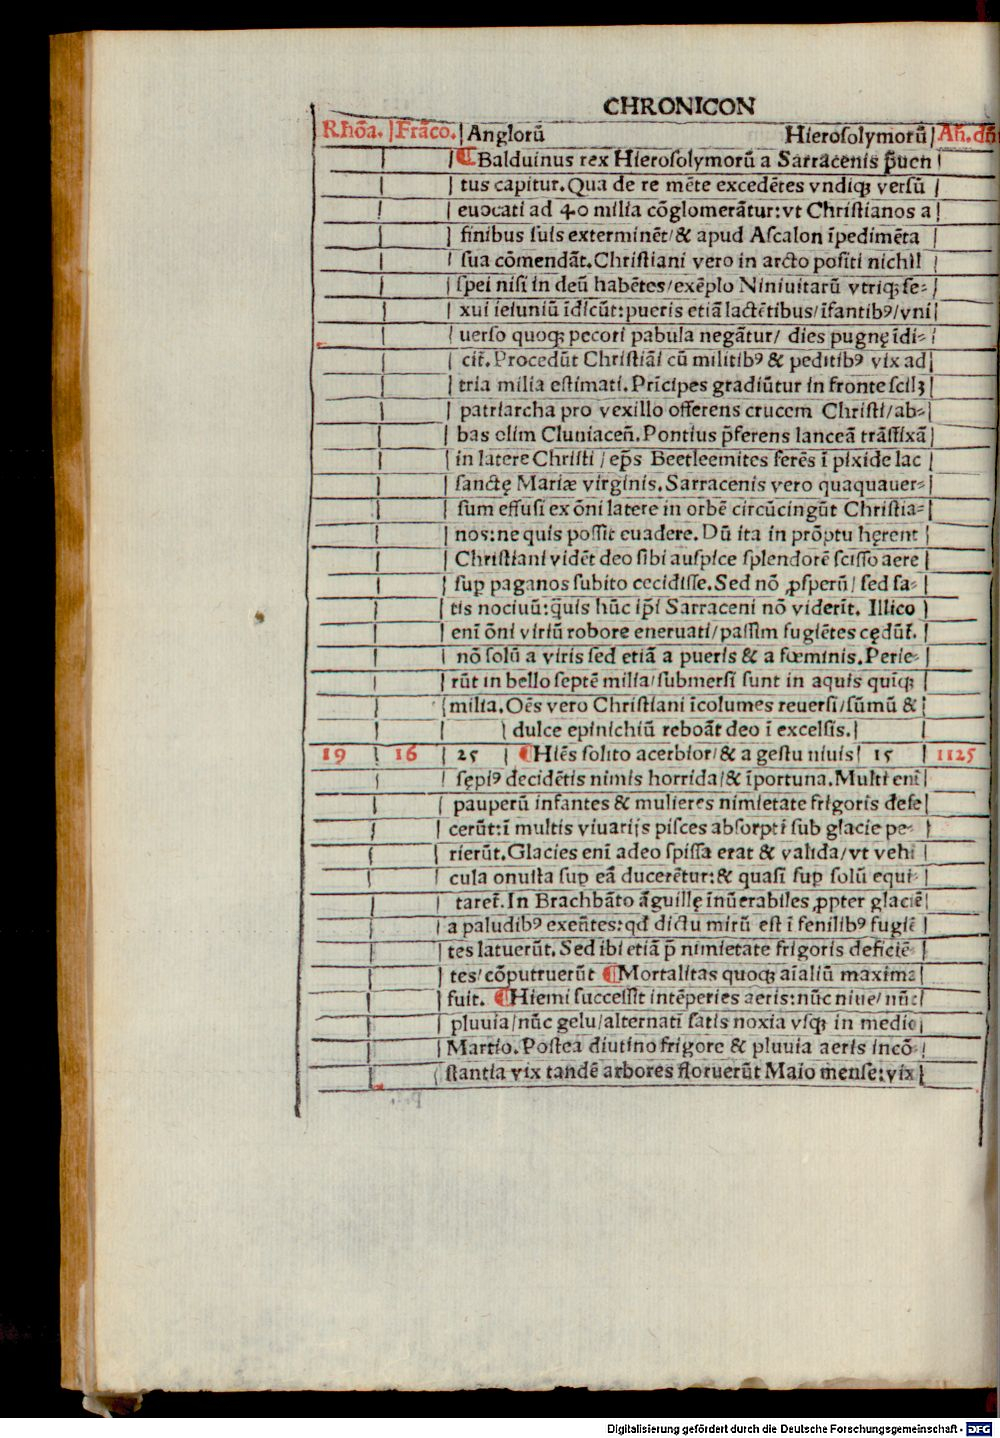 CHRONICON
Rhōa. Frāco. Anglorū Hierosolymorū Añ. dñi
¶Balduinus rex Hierosolymorū a Sarracenis p̄uen
tus capitur. Qua de re mēte excedētes vndiqꝫ versū
euocati ad 40 milia cōglomerātur: vt Christianos a
finibus suis exterminēt/ & apud Ascalon īpedimēta
sua cōmendāt. Christiani vero in arcto positi nichil
spei nisi in deū habētes/ exēplo Niniuitarū vtriqꝫ se⸗
xui ieiuniū īdicūt: pueris etiā lactētibus/ īfantibꝰ/ vni
uerso quoqꝫ pecori pabula negātur/ dies pugnę īdi⸗
cit̄. Procedūt Christiāi cū militibꝰ & peditibꝰ vix ad
tria milia estimati. Prīcipes gradiūtur in fronte scilꝫ
patriarcha pro vexillo offerens crucem Christi/ ab⸗
bas olim Cluniaceñ. Pontius p̄ferens lanceā trāsfixā
in latere Christi / ep̄s Beetleemites ferēs ī pixide lac
sanctę Mariæ virginis. Sarracenis vero quaquauer⸗
sum effusi ex ōni latere in orbē circūcingūt Christia⸗
nos: ne quis possit euadere. Dū ita in prōptu hęrent
Christiani vidēt deo sibi auspice splendorē scisso aere
suꝑ paganos subito cecidisse. Sed nō ꝓsperū/ sed sa⸗
tis nociuū: q̄uis hūc ip̄i Sarraceni nō viderīt. Illico
enī ōni viriū robore eneruati/ passim fugiētes cędūt̄.
nō solū a viris sed etiā a pueris & a fœminis. Perie⸗
rūt in bello septē milia/ submersi sunt in aquis quīqꝫ
milia. Oēs vero Christiani īcolumes reuersi/ sūmū &
dulce epinichiū reboāt deo ī excelsis.
19 16 25 ¶Hiēs solito acerbior/ & a gestu niuis 15 1125
sępiꝰ decidētis nimis horrida/ & īportuna. Multi enī
pauperū infantes & mulieres nimietate frigoris defe
cerūt: ī multis viuarijs pisces absorpti sub glacie pe⸗
rierūt. Glacies enī adeo spissa erat & valida/ vt vehi
cula onusta suꝑ eā ducerētur: & quasi suꝑ solū equi⸗
taret̄. In Brachbāto āguillę īnūerabiles ꝓpter glaciē
a paludibꝰ exeūtes: qd̄ dictu mirū est ī fenilibꝰ fugiē
tes latuerūt. Sed ibi etiā p̄ nimietate frigoris deficiē⸗
tes/ cōputruerūt ¶Mortalitas quoqꝫ aīaliū maxima
fuit. ¶Hiemi successit intēperies aeris: nūc niue/ nūc
pluuia/ nūc gelu/ alternati satis noxia vsqꝫ in medio
Martio. Postea diutino frigore & pluuia aeris incō⸗
stantia vix tandē arbores floruerūt Maio mense: vix
Digitalisierung gefördert durch die Deutsche Forschungsgemeinschaft - DFG